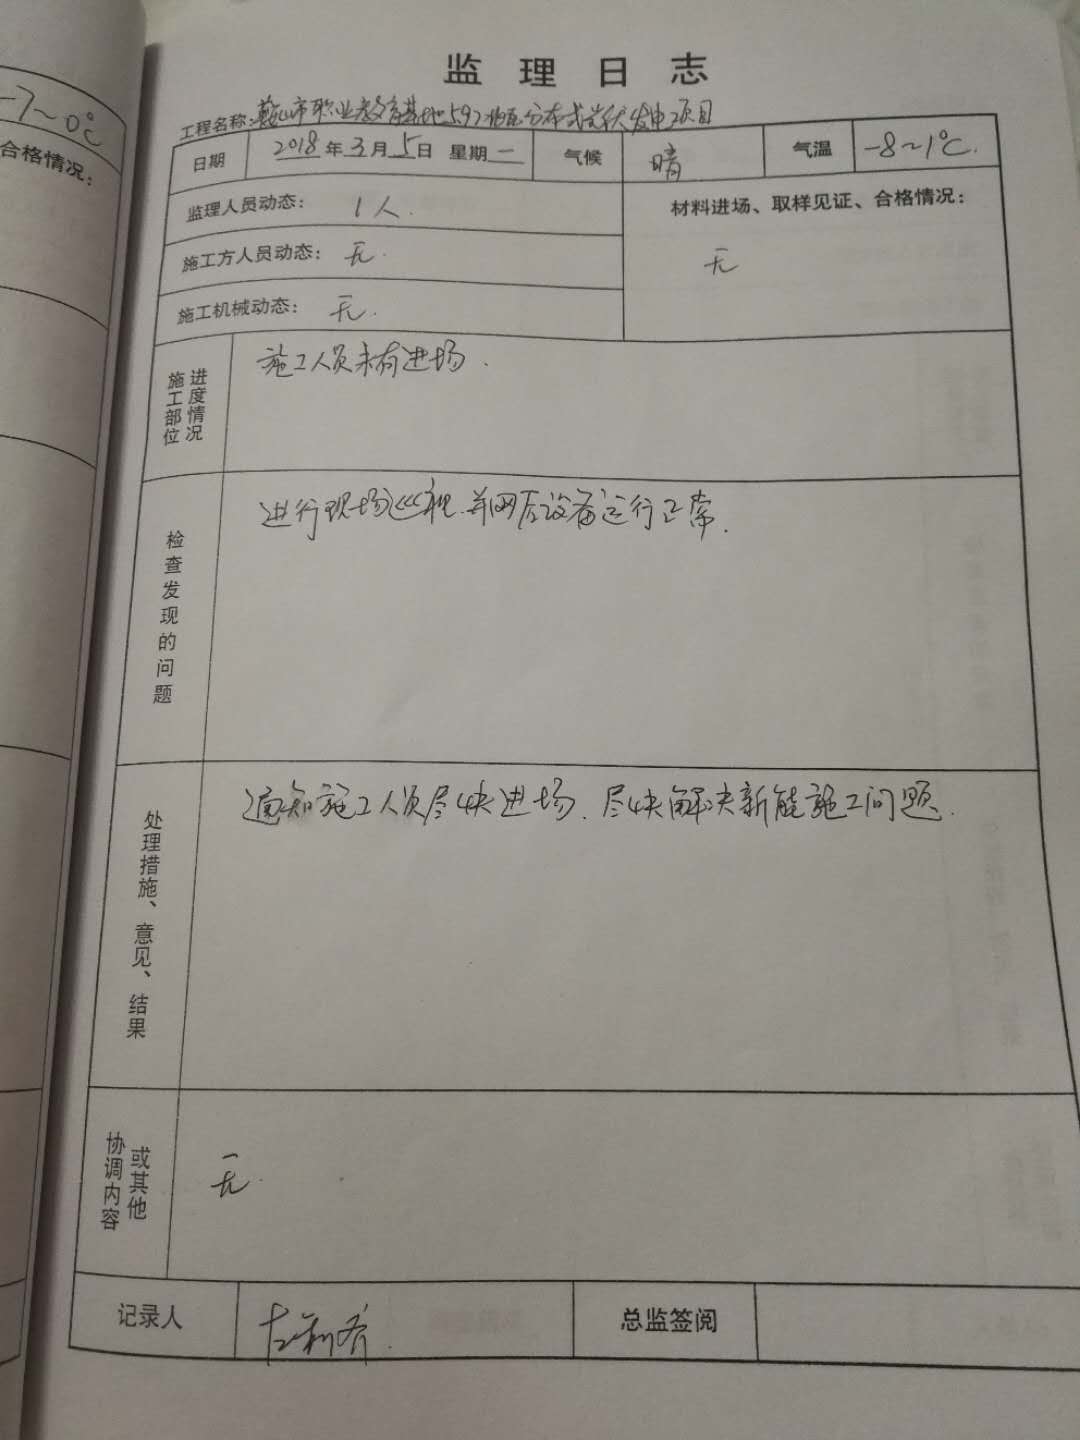 -7~0℃
合格情况：
监理日志
工程名称：鞍山市职业教育基地5.9兆瓦分布式光伏发电项目
日期 2018年3月5日 星期一 气候 晴 气温 -8~1℃.
监理人员动态： 1人.
材料进场、取样见证、合格情况：
施工方人员动态： 无.
无
施工机械动态： 无.
施工部位
进度情况
施工人员未有进场.
检查发现的问题
进行现场巡视.并网后设备运行正常.
处理措施、意见、结果
通知施工人员尽快进场.尽快解决新能施工问题.
协调内容
或其他
无.
记录人 总监签阅